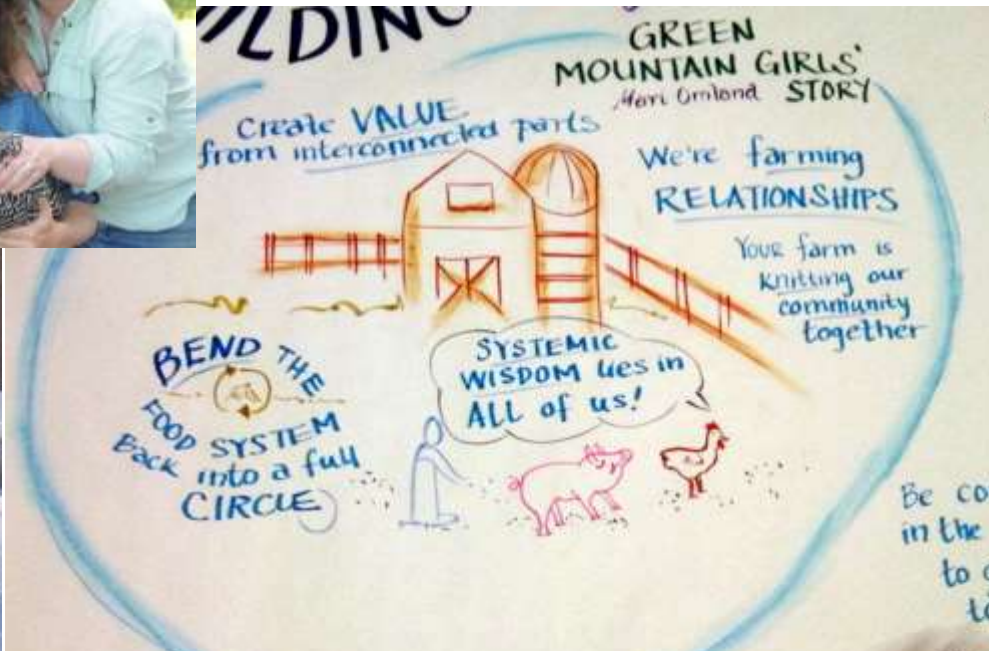 ILDING
GREEN
MOUNTAIN GIRLS'
Mari Omland STORY
Create VALUE
from interconnected parts
We're farming
RELATIONSHIPS
Your farm is
knitting our
community
together
BEND THE
FOOD SYSTEM
Back into a full
CIRCLE
SYSTEMIC
WISDOM lies in
ALL of us!
Be co
in the
to